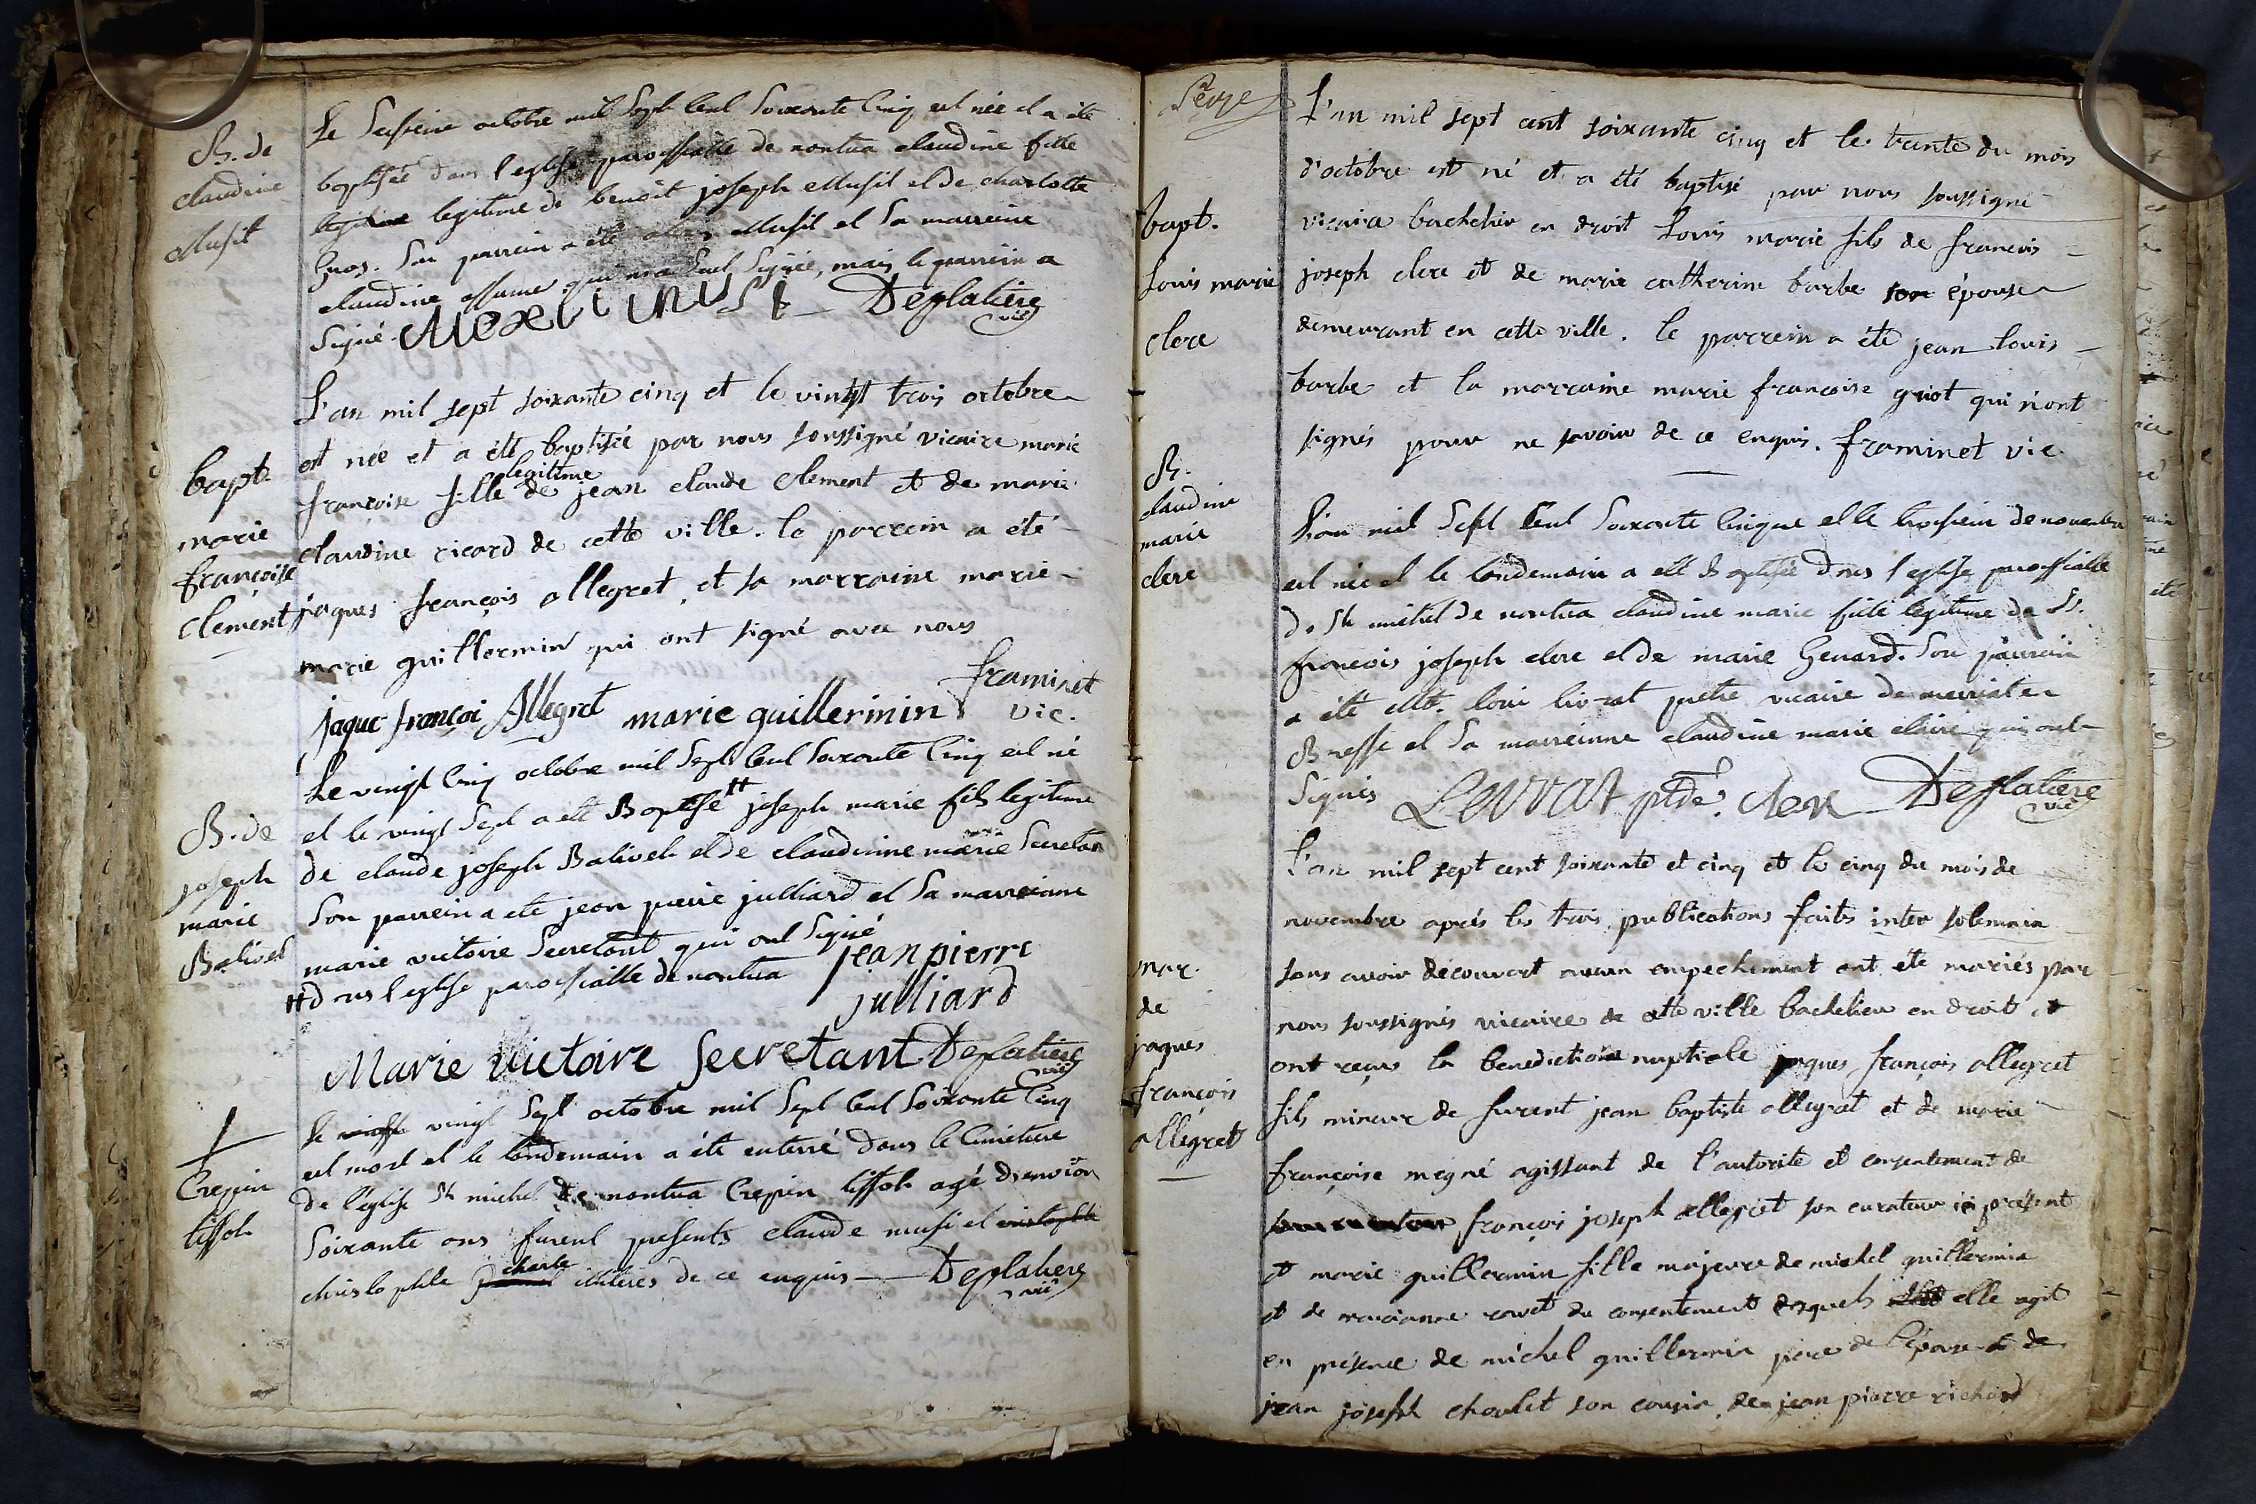 B. de
claudine
Musit
Le seisieme octobre mil sept cent soixante cinq est née et a été
baptisée dans l'eglise paroissialle de nantua claudine fille
legitime de benoit joseph Musit et de charlotte
gros. Son parrein a été Musit et sa marreine
claudine qui seul signée, mais le parrein a
signé. Deplatiere
vic
bapt.
marie
françoise
clement
L'an mil sept soixante cinq et le vingt trois octobre
est née et a été baptisée par nous soussigné vicaire marie
françoise fille legitime de jean claude clement et de marie
claudine ricard de cette ville. le parrein a été
jaques françois allegret, et sa marraine marie
marie guillermin qui ont signé avec nous
jaque françoi Allegret marie guillermin framinet
vic.
B. de
joseph
marie
Balivet
Le vingt cinq octobre mil sept cent soixante cinq est né
et le vingt sept a été Baptisé # joseph marie fils legitime
de claude joseph Balivet et de claudinne marie Secretan
Son parrein a été jean pierre julliard et sa marreinne
marie victoire Secretant qui ont signé
# dans l'eglise paroissialle de nantua jean pierre
julliard
Marie victoire Secretant Deplatiere
vic
Crepin
tissot
Le vingt sept octobre mil sept cent soixante cinq
est mort et le londemain a été enterré dans le cimetiere
de l'église St michel de nantua Crepin tissot agé d'environ
Soixante ans furent presents claude musi et
christophle charle illiteres de ce enquis — Deplatiere
vic
bapt.
louis marie
clerc
L'an mil sept cent soixante cinq et le trente du mois
d'octobre est né et a été baptisé par nous soussigné
vicaire bachelier en droit louis marie fils de francois
joseph clerc et de marie catherine barbe son épouse
demeurant en cette ville. le parrein a été jean louis
barbe et la marraine marie francoise guiot qui n'ont
signés pour ne savoir de ce enquis. framinet vic.
B.
claudine
marie
clerc
L'an mil sept cent soixante cinque et le troisieme de novembre
est née et le londemain a été Baptisée dans l'eglise paroissialle
de St michel de nantua claudine marie fille legitime de Sr.
francois joseph clerc et de marie Genard. Son parrein
a été Mre. loui livrat pretre vicaire de meiriat en
Bresse et sa marreinne claudine marie claire qui ont
signés Levrat ptre. clerc Deplatiere
vic
mar.
de
jaques
françois
allegret
L'an mil sept cent soixante et cinq et le cinq du mois de
novembre aprés les trois publications faites inter solemnia
sans avoir découvert aucun empechement ont été mariés par
nous soussignés vicaire de cette ville bachelier en droit et
ont reçus la benediction nuptiale jaques françois allegret
fils mineur de furent jean baptiste allegret et de marie
françoise meyné agissant de l'autorité et consentement de
françois joseph allegret son curateur ici présent
et marie guillermin fille majeure de michel guillermin
et de marianne ravet du consentement desquels elle agit
en présence de michel guillermin pere de l'épouse et de
jean joseph choulet son cousin, de jean pierre richard